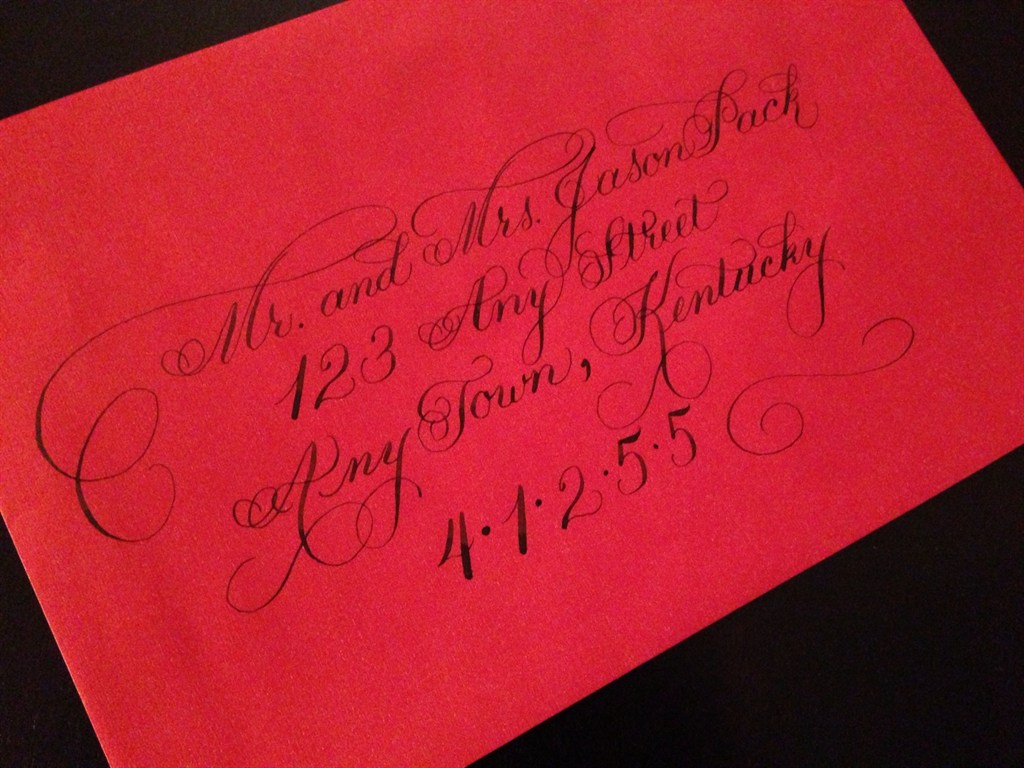 Mr. and Mrs. Jason Pack
123 Any Street
Any Town, Kentucky
4·1·2·5·5